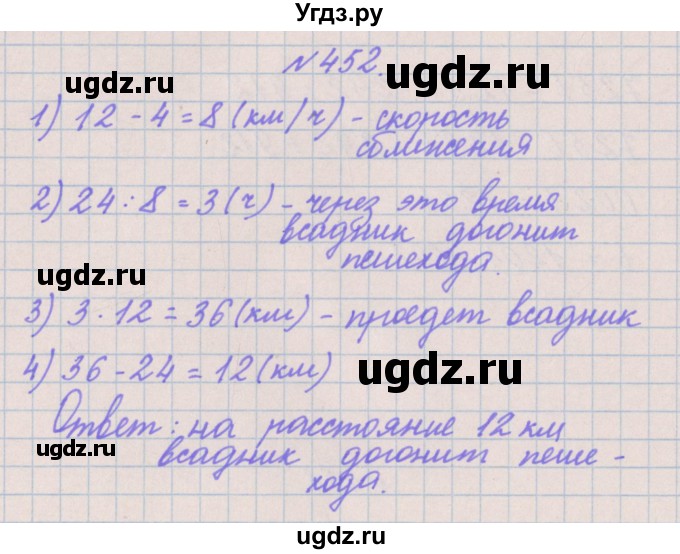 Угдз.ру
№452.
ugdz.ru
ugdz.ru
1) 12 - 4 = 8 (км/ч) - скорость
сближения
2) 24 : 8 = 3 (ч) - через это время
всадник догонит
пешехода.
ugdz.ru
ugdz.ru
3) 3 · 12 = 36 (км) - проедет всадник
4) 36 - 24 = 12 (км)
ugdz.ru
Ответ: на расстояние 12 км
ugdz.ru
всадник догонит пеше -
хода.
ugdz.ru
ugdz.ru